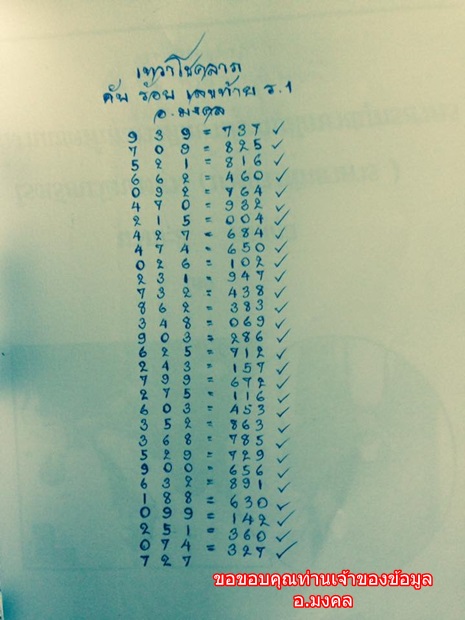 เทวาโชคลาภ
ดับ ร้อย เลขท้าย ร.1
อ.มงคล
9 3 9 = 737 ✓
7 0 8 = 825 ✓
5 2 1 = 816 ✓
6 6 2 = 460 ✓
0 9 2 = 764 ✓
4 7 0 = 932 ✓
2 1 5 = 004 ✓
4 2 7 = 684 ✓
4 7 4 = 650 ✓
0 2 6 = 102 ✓
2 3 1 = 947 ✓
7 3 2 = 438 ✓
8 6 2 = 383 ✓
3 4 8 = 069 ✓
9 0 3 = 286 ✓
6 2 5 = 712 ✓
2 4 3 = 157 ✓
7 9 9 = 672 ✓
2 7 5 = 116 ✓
6 0 3 = 453 ✓
3 5 2 = 863 ✓
3 6 8 = 785 ✓
5 2 9 = 729 ✓
9 0 0 = 656 ✓
6 3 2 = 891 ✓
1 8 8 = 630 ✓
0 9 9 = 142 ✓
2 5 1 = 360 ✓
0 7 4 = 327 ✓
7 2 7
ขอขอบคุณท่านเจ้าของข้อมูล
อ.มงคล